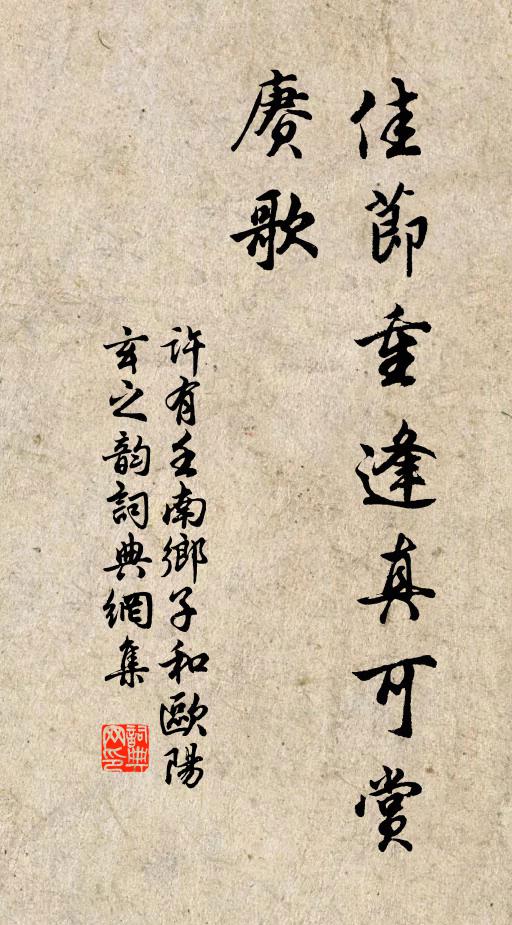 佳節重逢真可賞
賡歌
許有壬南鄉子和歐陽
玄之韵詞典網集
詞典
网印